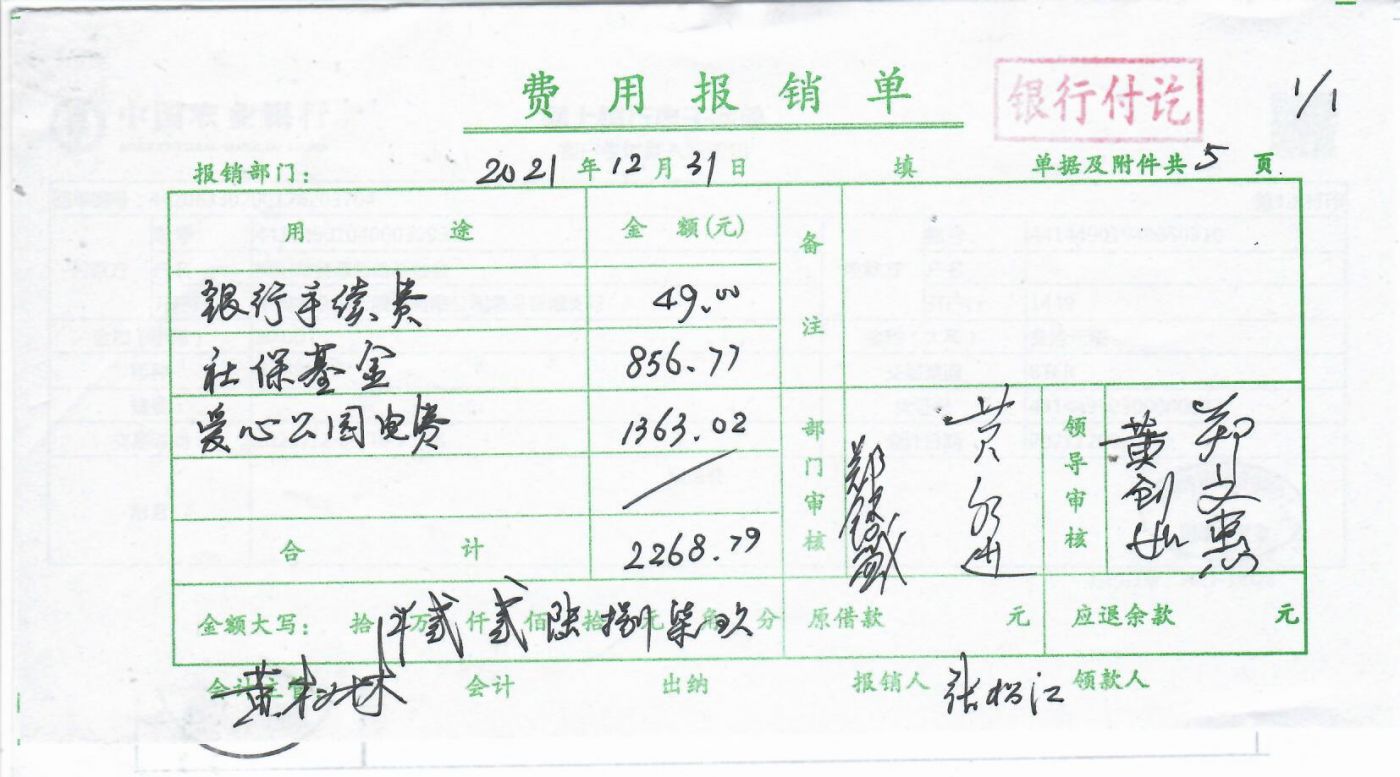 费用报销单 银行付讫 1/1
报销部门： 2021年12月31日 填 单据及附件共5页
用途 金额(元) 备注
银行手续费 49.00
社保基金 856.77
爱心公园电费 1363.02
合计 2268.79
部门审核 领导审核 郑文惠
金额大写： 拾万贰仟贰佰陆拾捌元柒角玖分 原借款 元 应退余款 元
会计主管 会计 出纳 报销人 张松江 领款人